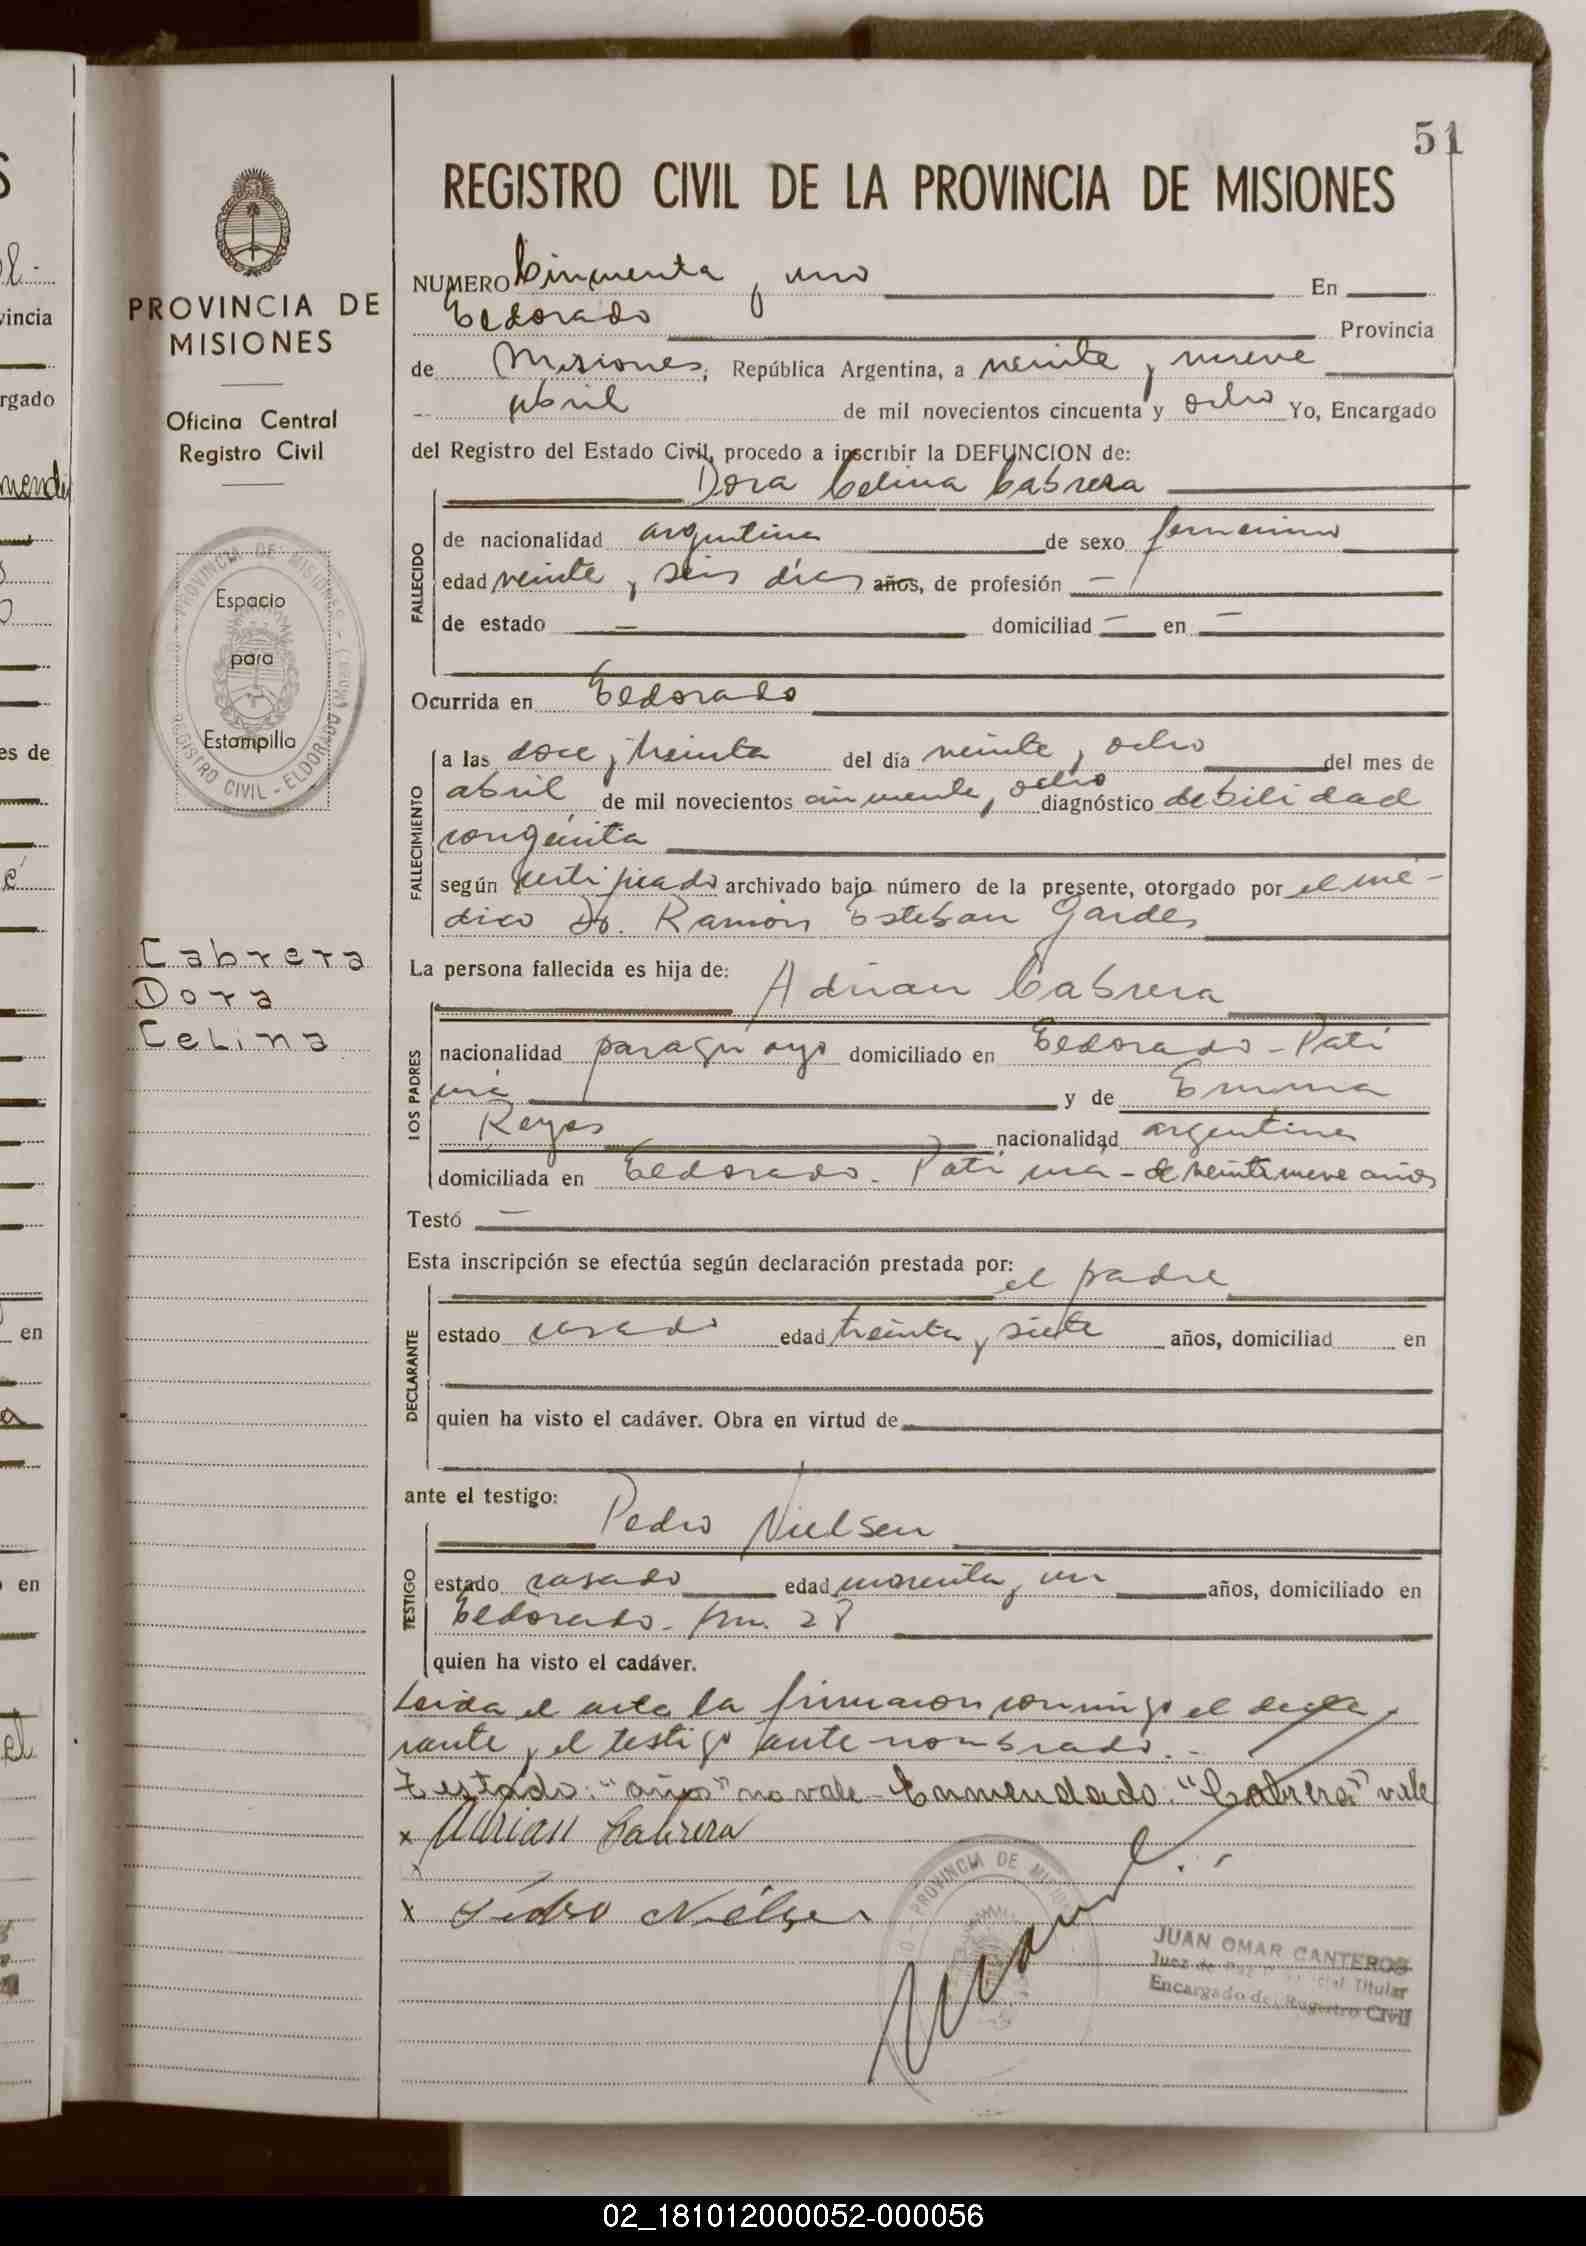 51
REGISTRO CIVIL DE LA PROVINCIA DE MISIONES
PROVINCIA DE
MISIONES
Oficina Central
Registro Civil
PROVINCIA DE MISIONES
REGISTRO CIVIL - ELDORADO (Mnes.)
Espacio
para
Estampilla
Cabrera
Dora
Celina
NUMERO Cincuenta y uno En
Eldorado Provincia
de Misiones, República Argentina, a veinte y nueve
abril de mil novecientos cincuenta y ocho Yo, Encargado
del Registro del Estado Civil, procedo a inscribir la DEFUNCION de:
Dora Celina Cabrera
FALLECIDO
de nacionalidad argentina de sexo femenino
edad veinte y seis días años, de profesión —
de estado — domiciliad — en —
Ocurrida en Eldorado
FALLECIMIENTO
a las doce y treinta del día veinte y ocho del mes de
abril de mil novecientos cincuenta y ocho diagnóstico debilidad
congénita
según certificado archivado bajo número de la presente, otorgado por el mé-
dico Dr. Ramón Esteban Gardes
La persona fallecida es hija de: Adrian Cabrera
LOS PADRES
nacionalidad paraguayo domiciliado en Eldorado - Pati
ñá y de Emma
Reyes nacionalidad argentina
domiciliada en Eldorado - Pati - de veintinueve años
Testó —
Esta inscripción se efectúa según declaración prestada por: el padre
DECLARANTE
estado casado edad treinta y siete años, domiciliad en
quien ha visto el cadáver. Obra en virtud de
ante el testigo: Pedro Nielsen
TESTIGO
estado casado edad cuarenta y un años, domiciliado en
Eldorado - Km. 28
quien ha visto el cadáver.
Leida el acta la firmaron conmigo el decla
rante y el testigo ante nombrado.-
Testado: "años" no vale - Enmendado: "Cabrera" vale
x Adrian Cabrera
x
x Pedro Nielsen
PROVINCIA DE MISIONES
JUAN OMAR CANTEROS
Juez de Paz Titular
Encargado del Registro Civil
02_181012000052-000056